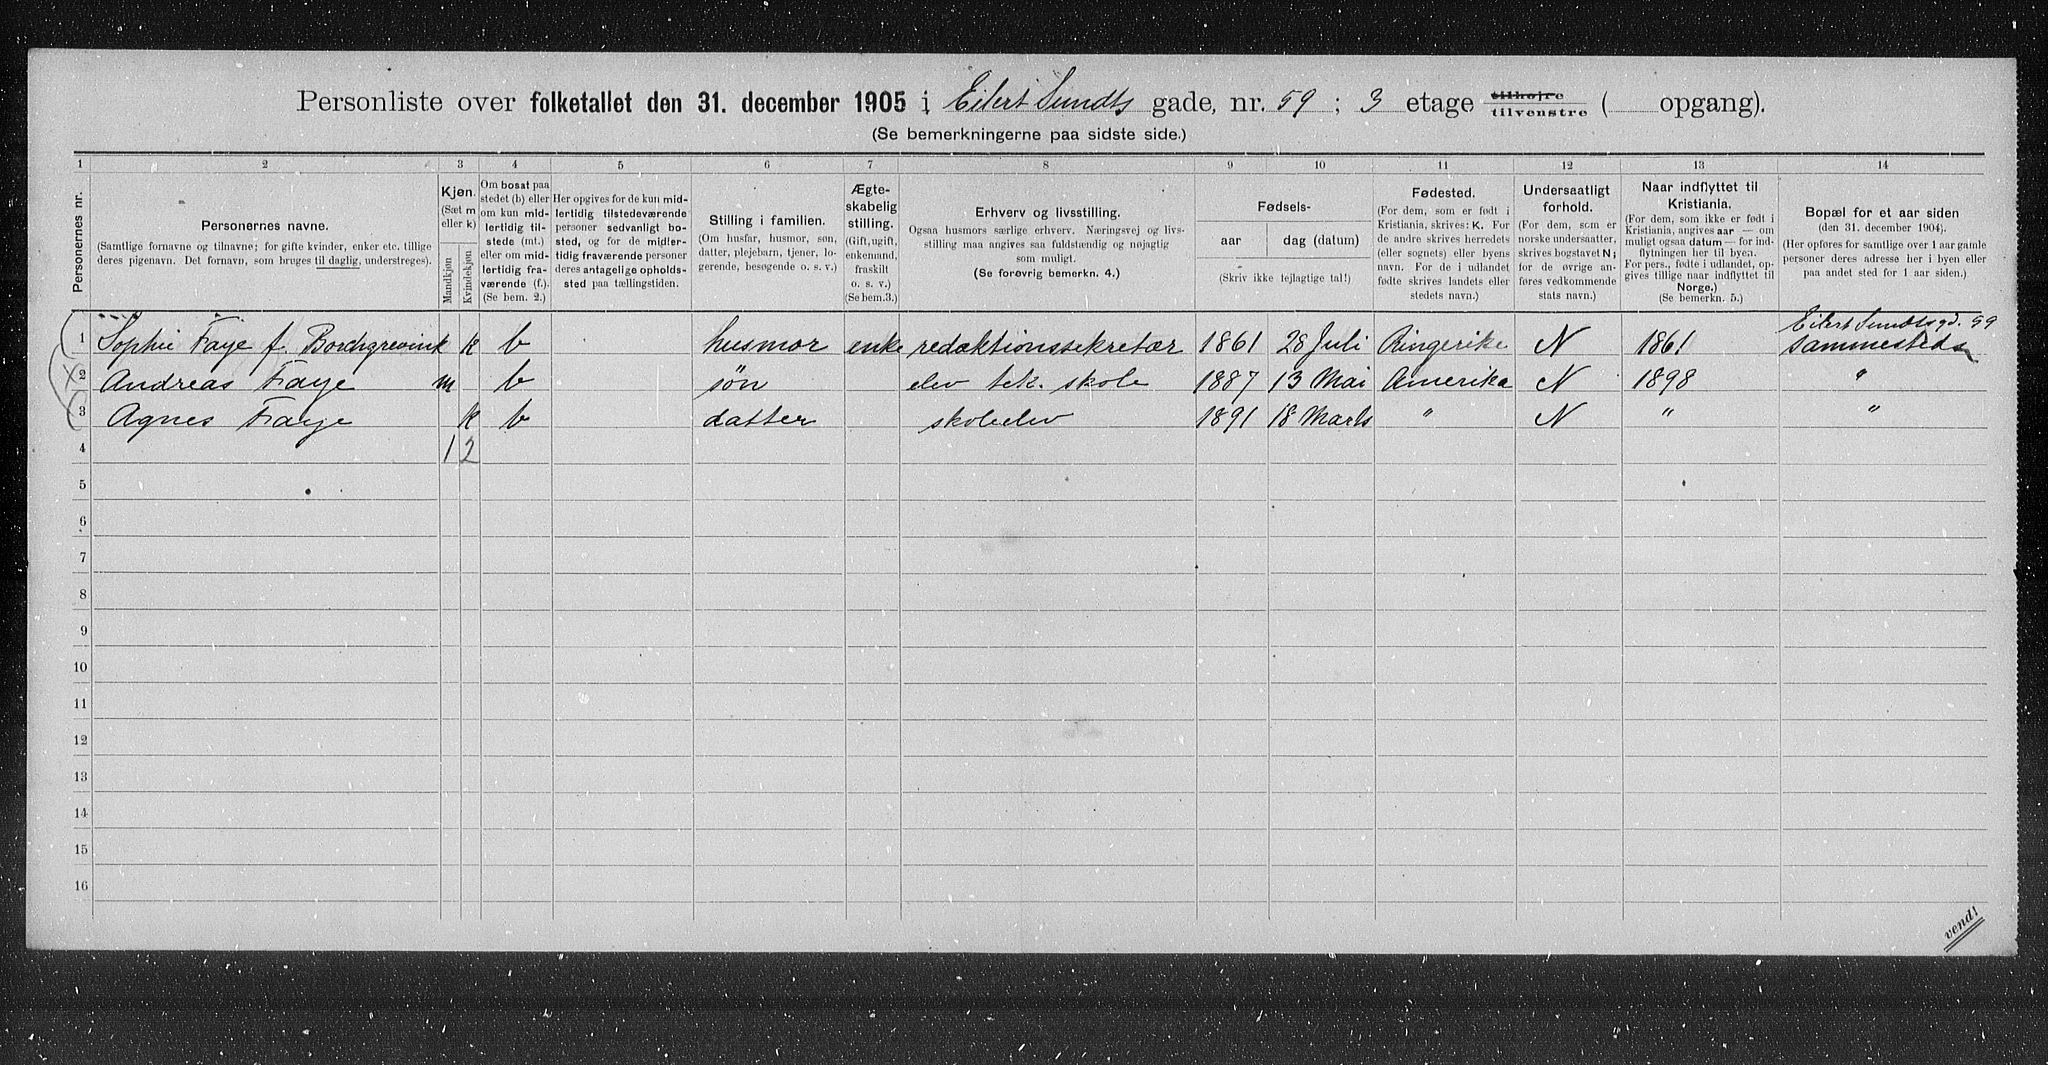 Personliste over folketallet den 31. december 1905 i Eilert Sundts gade, nr. 59 ; 3 etage tilhøjre tilvenstre ( opgang).
(Se bemerkningerne paa sidste side.)
1 2 3 4 5 6 7 8 9 10 11 12 13 14
Personernes nr.
Personernes navne.
(Samtlige fornavne og tilnavne; for gifte kvinder, enker etc. tillige
deres pigenavn. Det fornavn, som bruges til daglig, understreges).
Kjøn.
(Sæt m
eller k)
Mandkjøn
Kvindekjøn
Om bosat paa
stedet (b) eller
om kun mid-
lertidig til-
stede (mt.)
eller om mid-
lertidig fra-
værende (f.).
(Se bem. 2.)
Her opgives for de kun mid-
lertidig tilstedeværende
personer sedvanlig bo-
sted, og for de midler-
tidig fraværende personer
deres antagelige opholds-
sted paa tællingstiden.
Stilling i familien.
(Om husfar, husmor, søn,
datter, plejebarn, tjener, lo-
gerende, besøgende o. s. v.)
Ægte-
skabelig
stilling.
(Gift, ugift,
enkemand,
fraskilt
o. s. v.)
(Se bem.3.)
Erhverv og livsstilling.
Ogsaa husmors særlige erhverv. Næringsvej og livs-
stilling maa angives saa fuldstændig og nøjagtig
som muligt.
(Se forøvrig bemerkn. 4.)
Fødsels-
aar
dag (datum)
(Skriv ikke fejlagtige tal!)
Fødested.
(For dem, som er født i
Kristiania, skrives: K. For
de andre skrives herredets
(eller sognets) eller byens
navn. For de i udlandet
fødte skrives landets eller
stedets navn.)
Undersaatligt
forhold.
(For dem, som er
norske undersaatter,
skrives bogstavet N;
for de øvrige an-
føres vedkommende
stats navn.)
Naar indflyttet til
Kristiania.
(For dem, som ikke er født i
Kristiania, angives aar — om
muligt ogsaa datum — for ind-
flytningen her til byen.
For pers., fødte i udlandet, op-
gives tillige naar indflyttet til
Norge.)
(Se bemerkn. 5.)
Bopæl for et aar siden
(den 31. december 1904).
(Her opføres for samtlige over 1 aar gamle
personer deres adresse her i byen eller
paa andet sted for 1 aar siden.)
Eilert Sundtsgd. 59
1 Sophie Faye f. Borchgrevink k b husmor enke redaktionssekretær 1861 28 Juli Ringerike N 1861 sammesteds
2 Andreas Faye m b søn elev tek. skole 1887 13 Mai Amerika N 1898 "
3 Agnes Faye k b datter skoleelev 1891 18 Marts " N " "
4 1 2
5
6
7
8
9
10
11
12
13
14
15
16
vend!